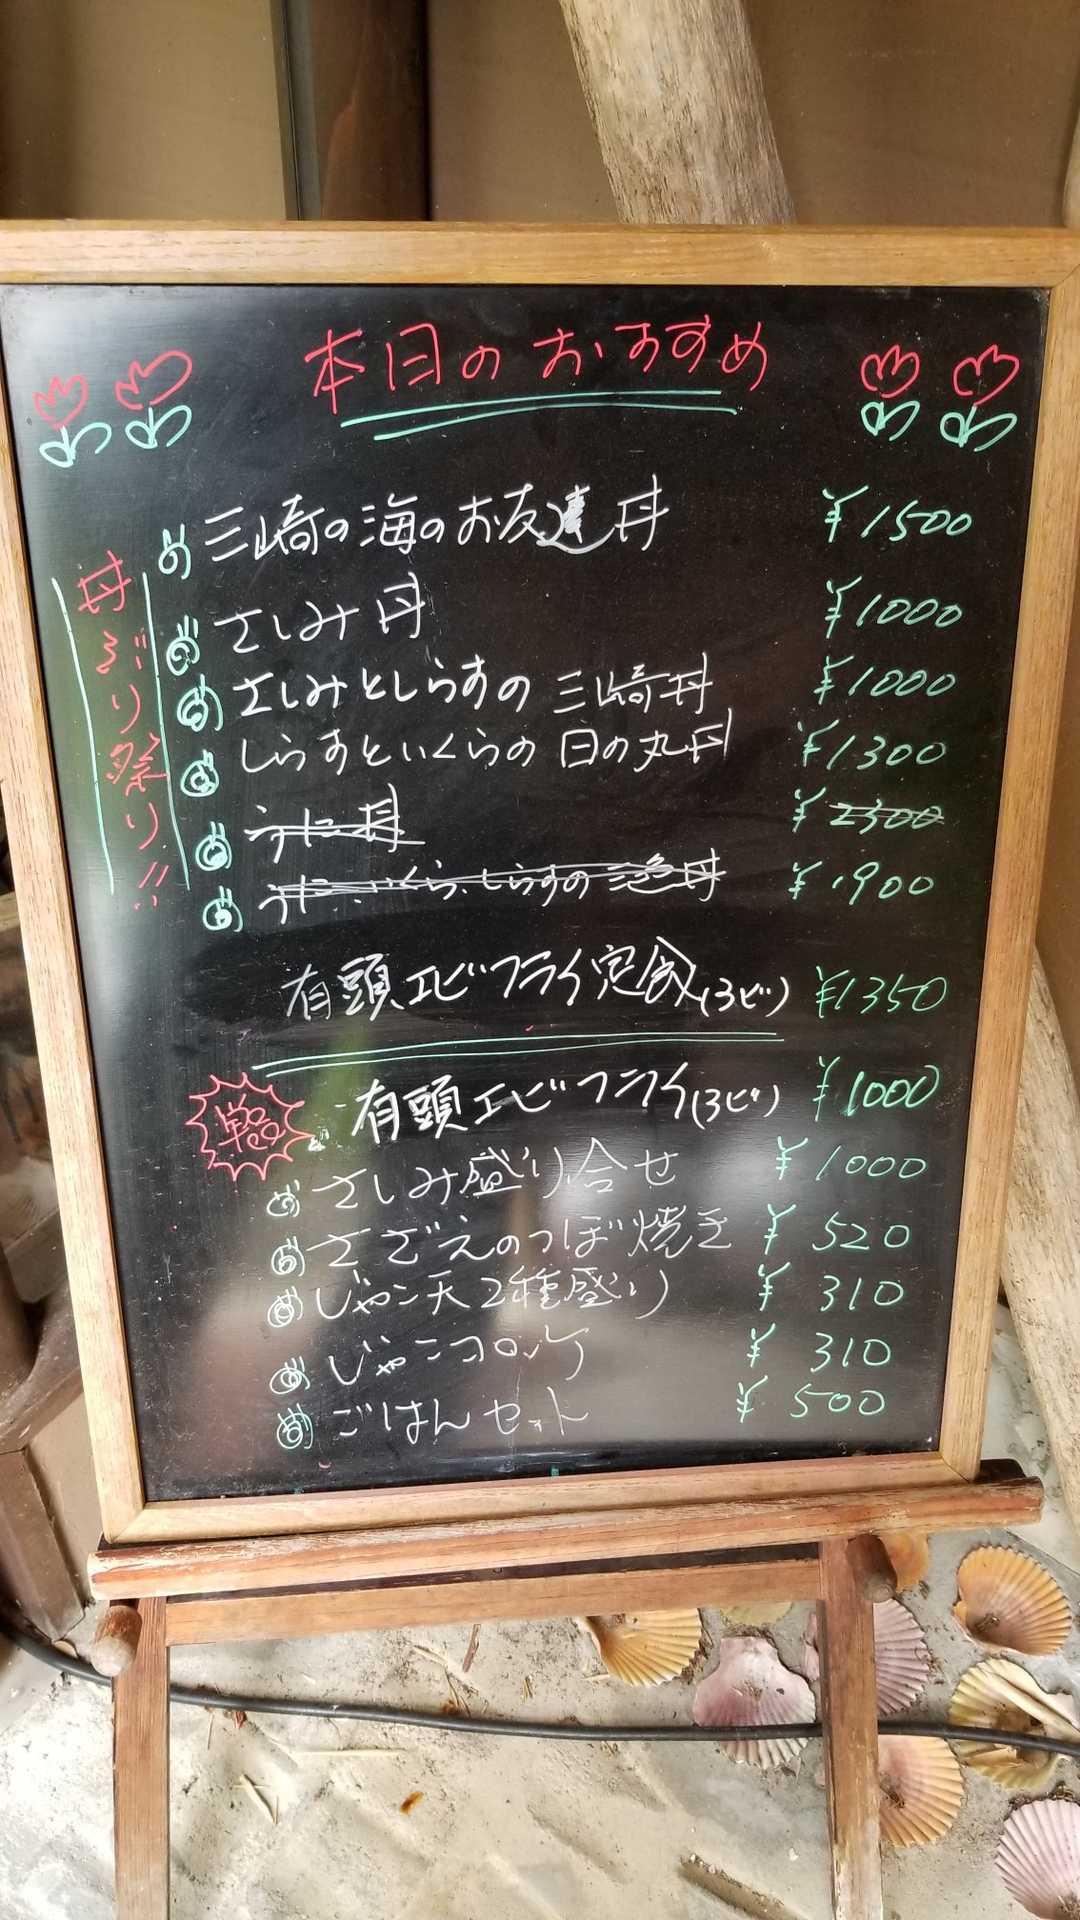 本日のおすすめ
丼ぶり祭り!!
三崎の海のお友達丼 ¥1500
さしみ丼 ¥1000
さしみとしらすの三崎丼 ¥1000
しらすといくらの日の丸丼 ¥1300
うに丼 ¥2300
うに、いくら、しらすの三色丼 ¥1900
有頭エビフライ定食(3ビ) ¥1350
単品
・有頭エビフライ(3ビ) ¥1000
さしみ盛り合せ ¥1000
さざえのつぼ焼き ¥520
じゃこ天2種盛り ¥310
じゃこコロッケ ¥310
ごはんセット ¥500